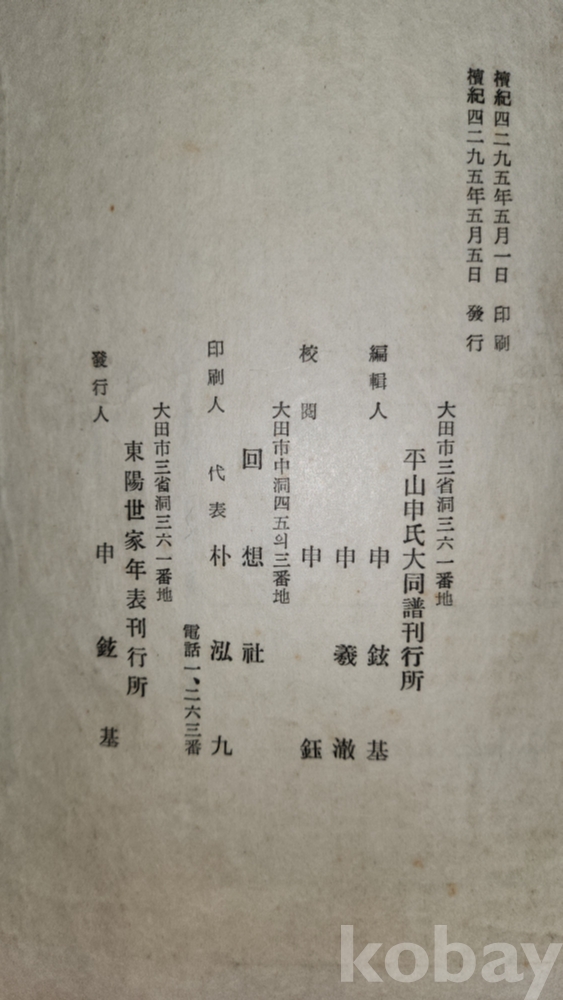 檀紀四二九五年五月一日 印刷
檀紀四二九五年五月五日 發行
大田市三省洞三六一番地
平山申氏大同譜刊行所
編輯人 申鉉基
申羲澈
校閱 申鈺
大田市中洞四五의三番地
回想社
印刷人 代表 朴泓九
電話一、二六三番
大田市三省洞三六一番地
東陽世家年表刊行所
發行人 申鉉基
kobay